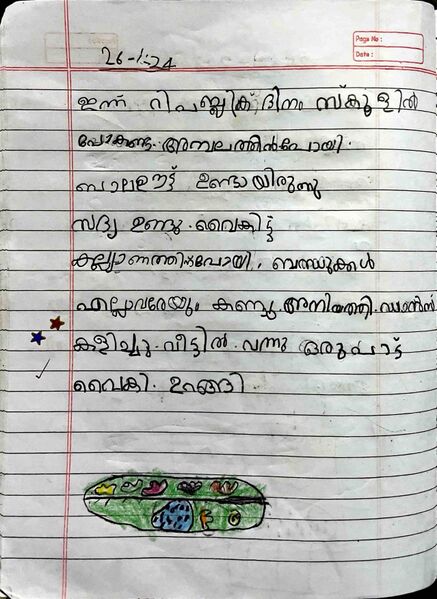 Page No :
Date :
26-1-24
ഇന്ന് റിപബ്ലിക് ദിനം സ്കൂളിൽ
പോകണ്ട. അമ്പലത്തിൽപോയി.
ബാലഊട്ട് ഉണ്ടായിരുന്നു
സദ്യ ഉണ്ടു. വൈകിട്ട്
കല്ല്യാണത്തിന്പോയി. ബന്ധുക്കൾ
എല്ലാവരേയും കണ്ടു. അനിയത്തി. ഡാൻസ്
കളിച്ചു. വീട്ടിൽ. വന്നു ഒരുപാട്ട്
വൈകി. ഉറങ്ങി